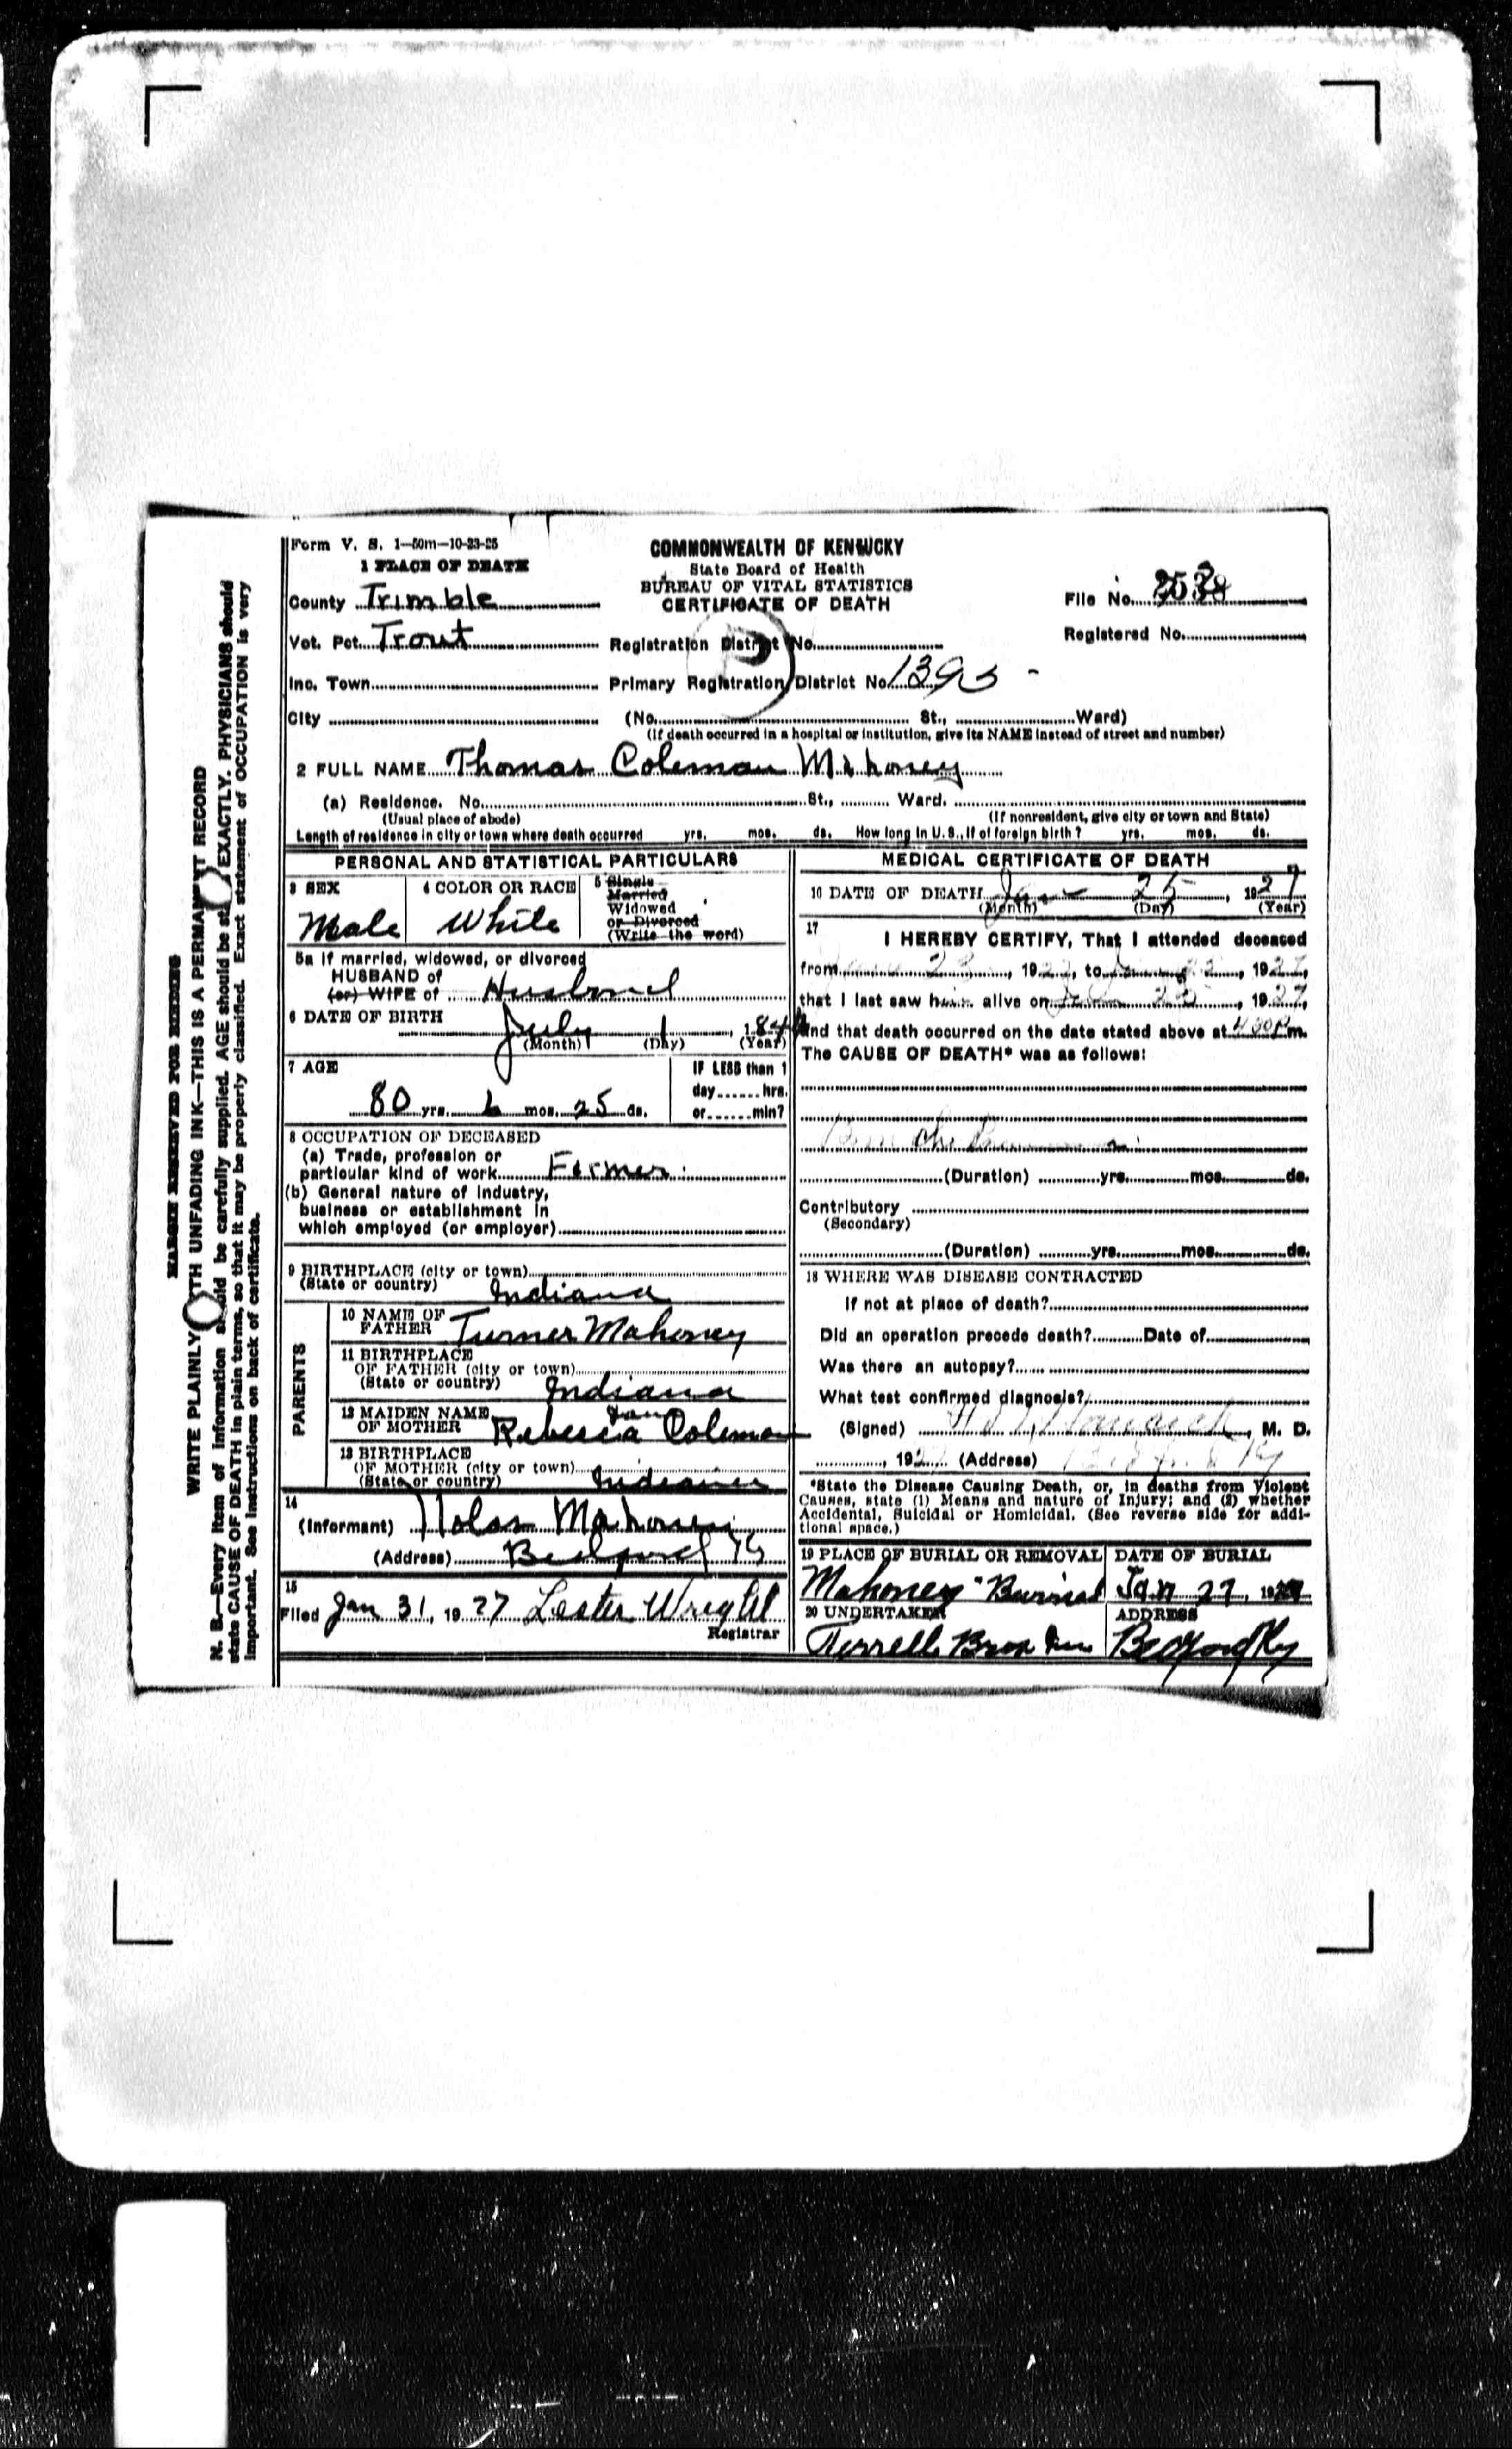 Form V. S. 1—50m—10-23-25
COMMONWEALTH OF KENTUCKY
State Board of Health
BUREAU OF VITAL STATISTICS
CERTIFICATE OF DEATH
1 PLACE OF DEATH
County Trimble
File No.
Vot. Pct. Trout
Registration District No.
Registered No.
Inc. Town
Primary Registration District No.
City
(No. St., Ward)
(If death occurred in a hospital or institution, give its NAME instead of street and number)
2 FULL NAME Thomas Coleman Mahoney
(a) Residence. No. St., Ward.
(Usual place of abode) (If nonresident, give city or town and State)
Length of residence in city or town where death occurred yrs. mos. ds. How long in U. S., if of foreign birth? yrs. mos. ds.
PERSONAL AND STATISTICAL PARTICULARS
3 SEX
Male
4 COLOR OR RACE
White
5 Single
Married
Widowed
or Divorced
(Write the word)
5a If married, widowed, or divorced
HUSBAND of
(or) WIFE of Husband
6 DATE OF BIRTH
July 1, 184
(Month) (Day) (Year)
7 AGE
80 yrs. 6 mos. 25 ds.
IF LESS than 1
day hrs.
or min?
8 OCCUPATION OF DECEASED
(a) Trade, profession or
particular kind of work Farmer
(b) General nature of industry,
business or establishment in
which employed (or employer)
9 BIRTHPLACE (city or town)
(State or country) Indiana
PARENTS
10 NAME OF
FATHER Turner Mahoney
11 BIRTHPLACE
OF FATHER (city or town)
(State or country) Indiana
12 MAIDEN NAME
OF MOTHER Rebecca Jan Coleman
13 BIRTHPLACE
OF MOTHER (city or town)
(State or country) Indiana
14
(Informant) Nolas Mahoney
(Address) Bedford Ky
15
Filed Jan 31, 1927 Lester Wright
Registrar
MEDICAL CERTIFICATE OF DEATH
16 DATE OF DEATH Jan 25, 1927
(Month) (Day) (Year)
17
I HEREBY CERTIFY, That I attended deceased
from Jan 23, 1927, to Jan 25, 1927,
that I last saw him alive on Jan 25, 1927,
and that death occurred on the date stated above at 4 30 P m.
The CAUSE OF DEATH* was as follows:
(Duration) yrs. mos. ds.
Contributory
(Secondary)
(Duration) yrs. mos. ds.
18 WHERE WAS DISEASE CONTRACTED
If not at place of death?
Did an operation precede death? Date of
Was there an autopsy?
What test confirmed diagnosis?
(Signed) M. D.
, 1927 (Address) Ky
*State the Disease Causing Death, or, in deaths from Violent
Causes, state (1) Means and nature of Injury; and (2) whether
Accidental, Suicidal or Homicidal. (See reverse side for addi-
tional space.)
19 PLACE OF BURIAL OR REMOVAL
Mahoney Burial
DATE OF BURIAL
Jan 27, 1927
20 UNDERTAKER
Terrell Bros
ADDRESS
Bedford Ky
MARGIN RESERVED FOR BINDING
WRITE PLAINLY WITH UNFADING INK—THIS IS A PERMANENT RECORD
N. B.—Every item of information should be carefully supplied. AGE should be stated EXACTLY. PHYSICIANS should
state CAUSE OF DEATH in plain terms, so that it may be properly classified. Exact statement of OCCUPATION is very
important. See instructions on back of certificate.